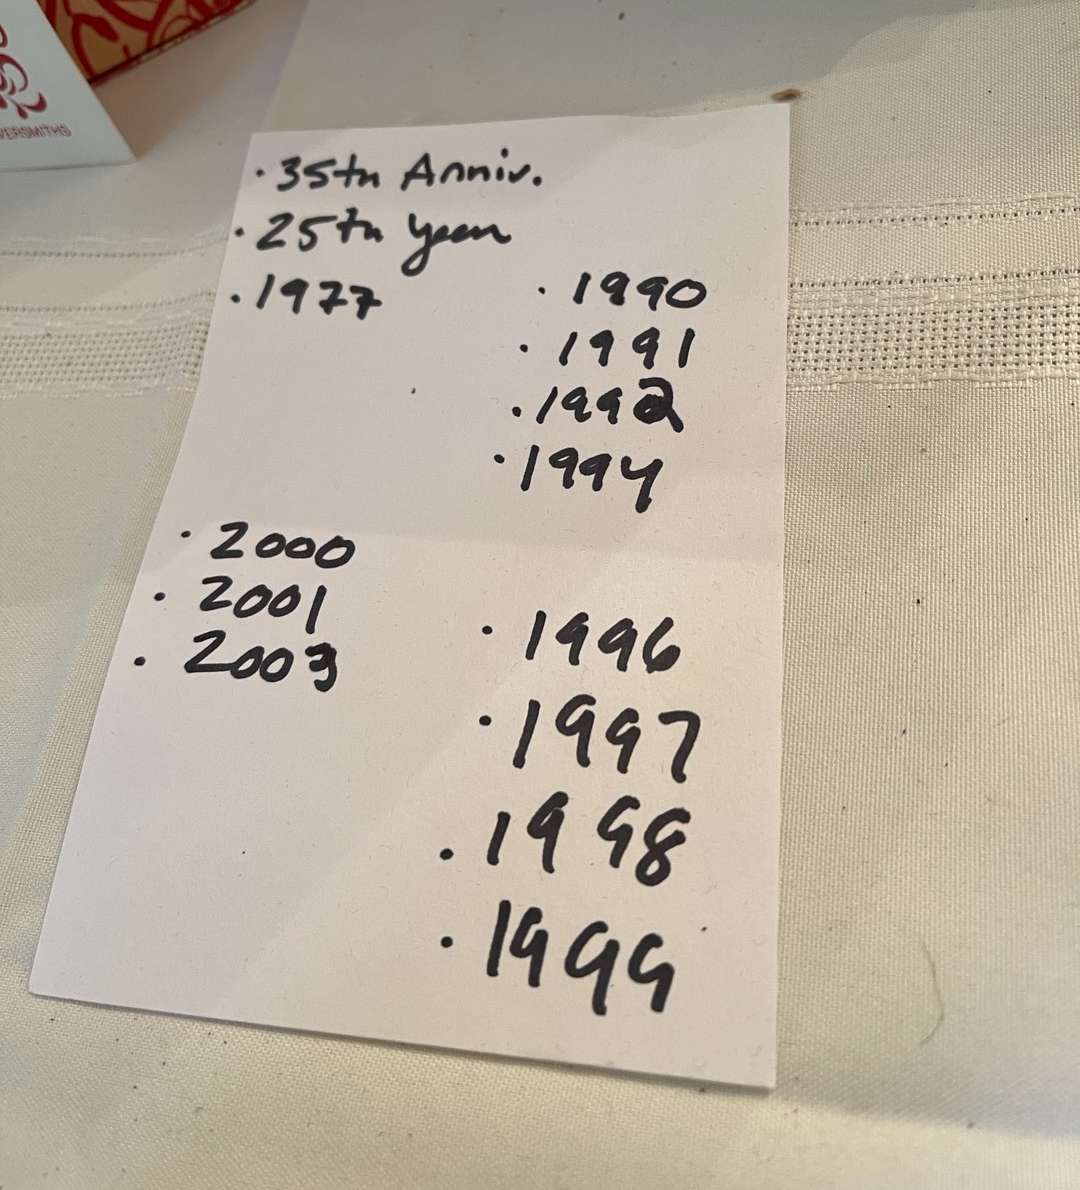 VERSMITHS
· 35th Anniv.
· 25th year
· 1977
· 1990
· 1991
· 1992
· 1994
· 2000
· 2001
· 2003
· 1996
· 1997
· 1998
· 1999